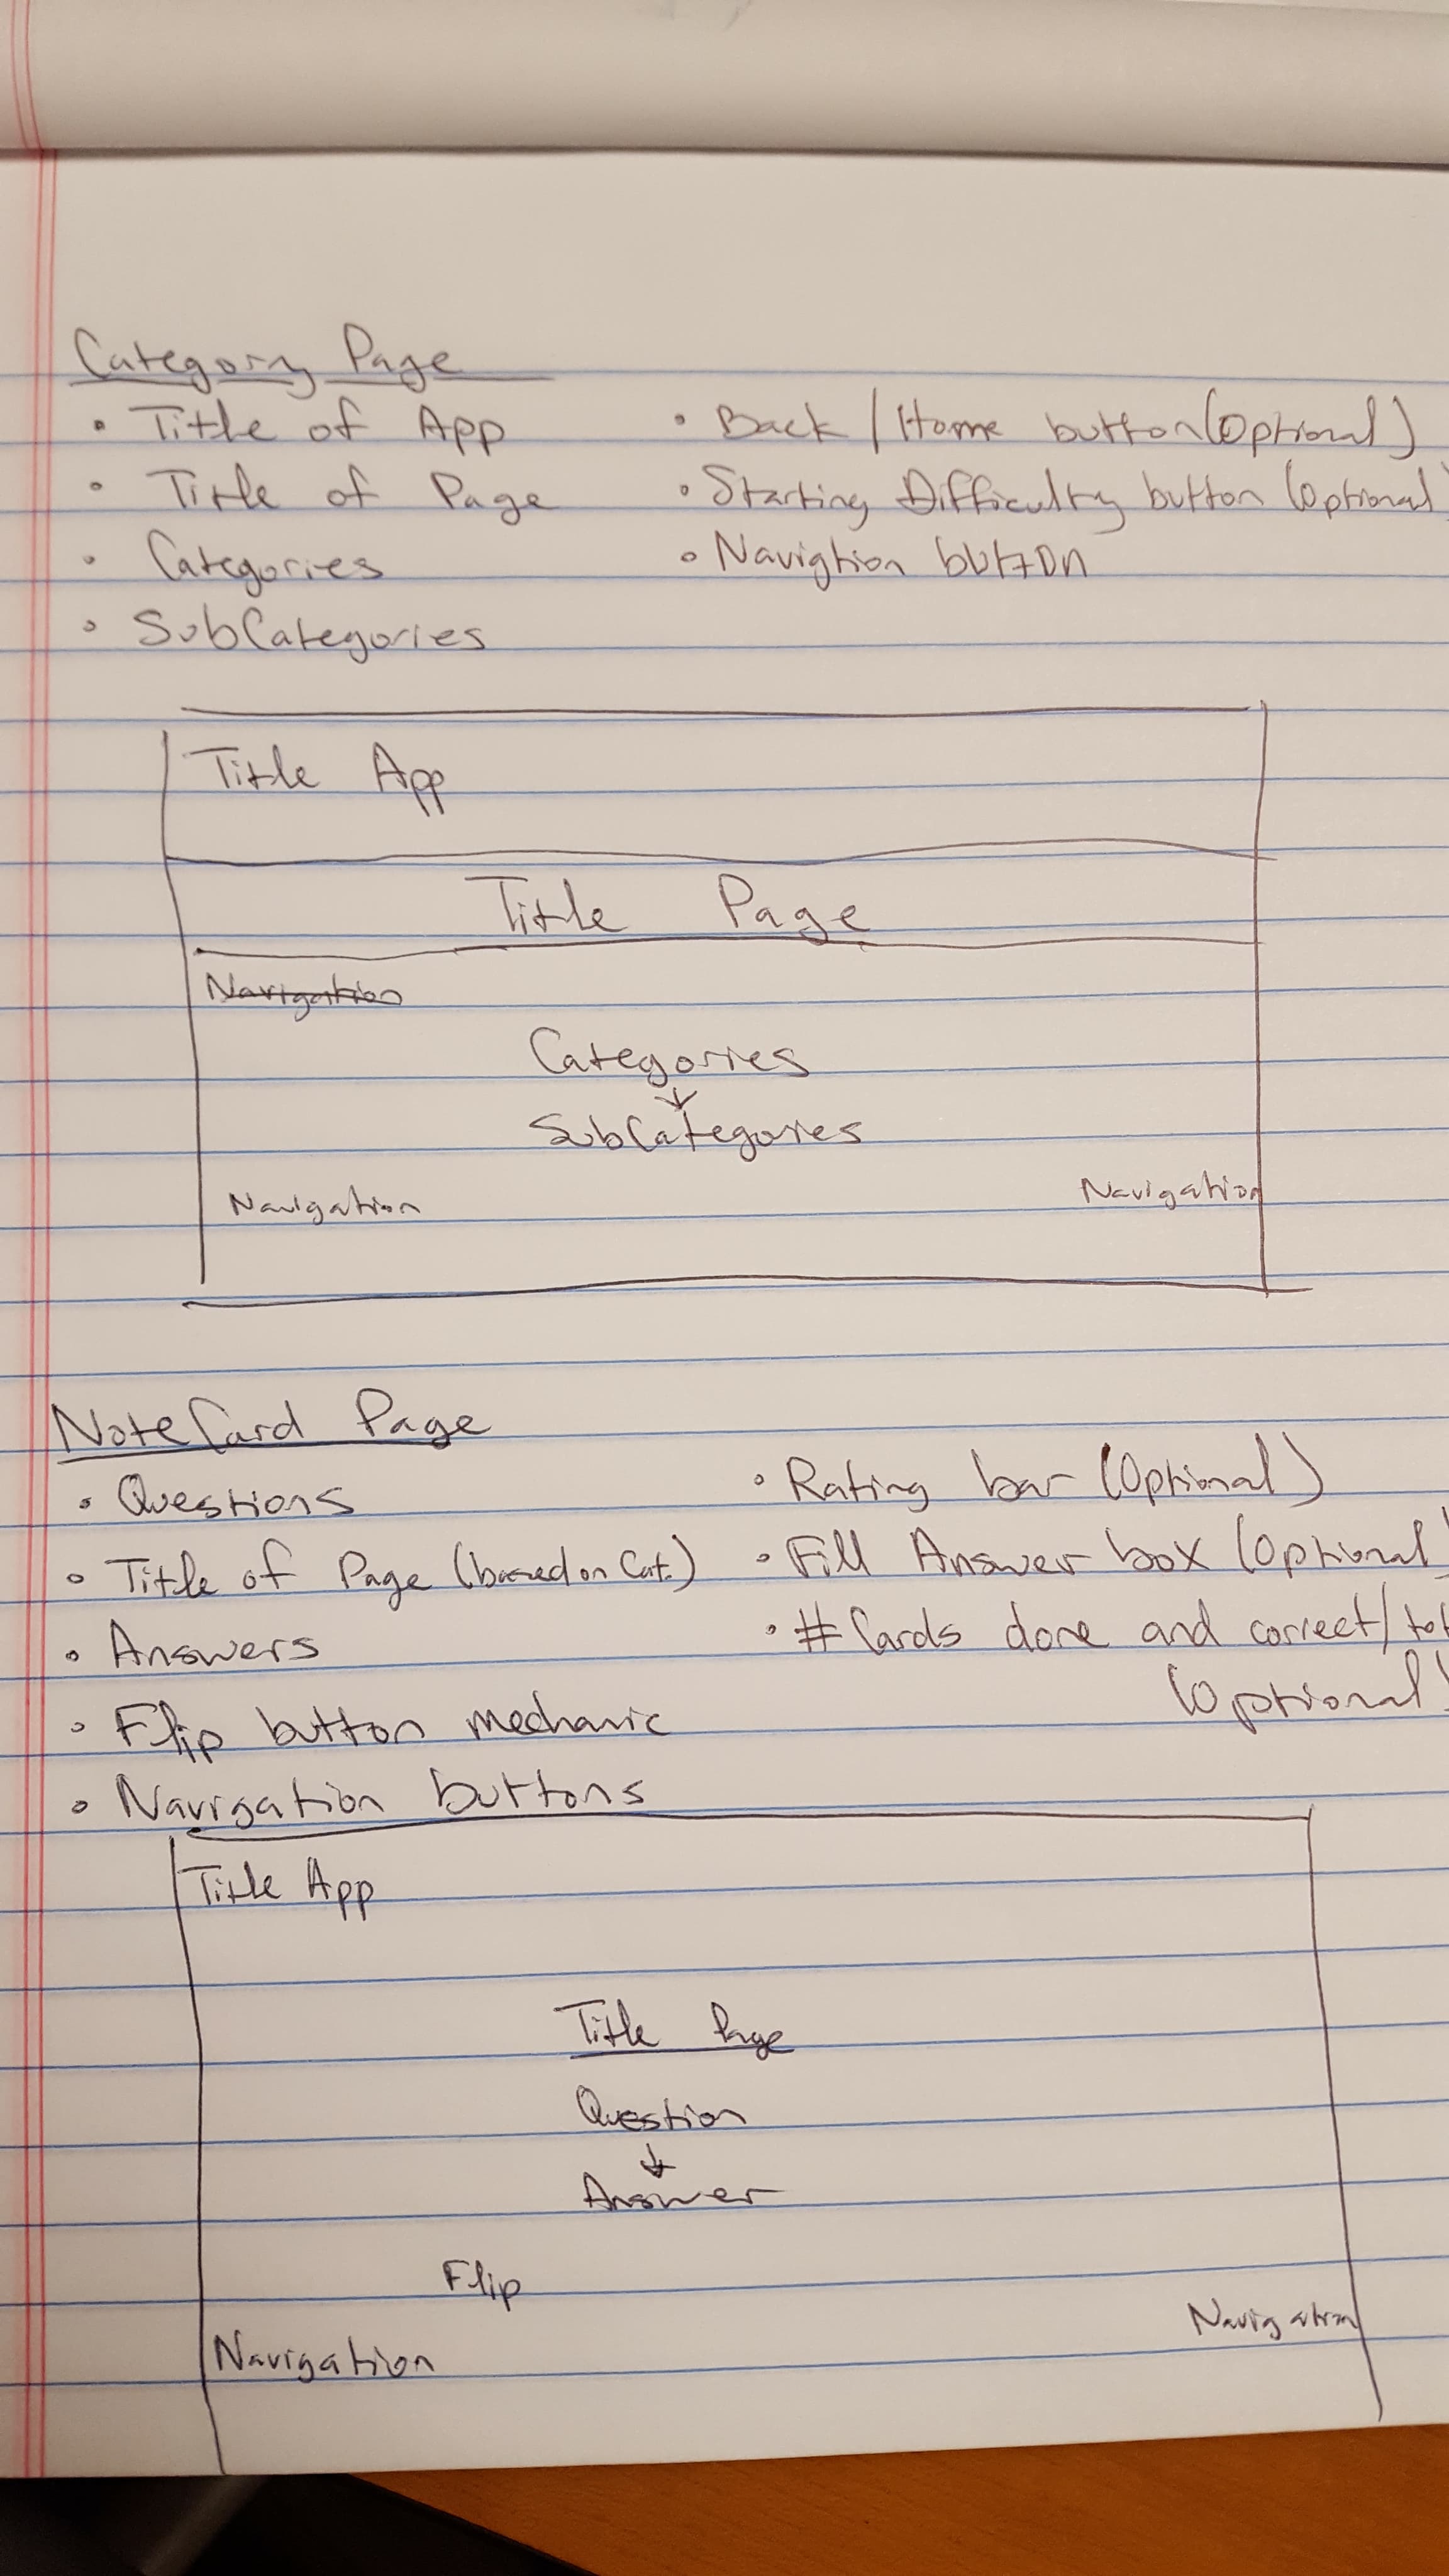 Category Page
• Title of App
• Title of Page
• Categories
• SubCategories
• Back / Home button (Optional)
• Starting Difficulty button (Optional)
• Navigtion button
Title App
Title Page
Navigation
Categories
↓
SubCategories
Navigation
Navigation
NoteCard Page
• Questions
• Title of Page (based on Cat.)
• Answers
• Flip button mechanic
• Navigation buttons
• Rating bar (Optional)
• Fill Answer box (Optional)
• # Cards done and correct/tot
(Optional)
Title App
Title Page
Question
↓
Answer
Flip
Navigation
Navigation